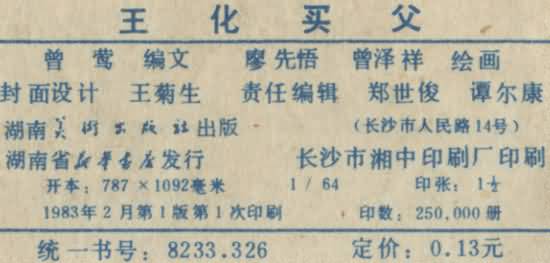 王化买父
曾莺 编文 廖先悟 曾泽祥 绘画
封面设计 王菊生 责任编辑 郑世俊 谭尔康
湖南美术出版社出版 (长沙市人民路14号)
湖南省新华书店发行 长沙市湘中印刷厂印刷
开本：787×1092毫米 1/64 印张：1½
1983年2月第1版第1次印刷 印数：250,000册
统一书号：8233.326 定价：0.13元